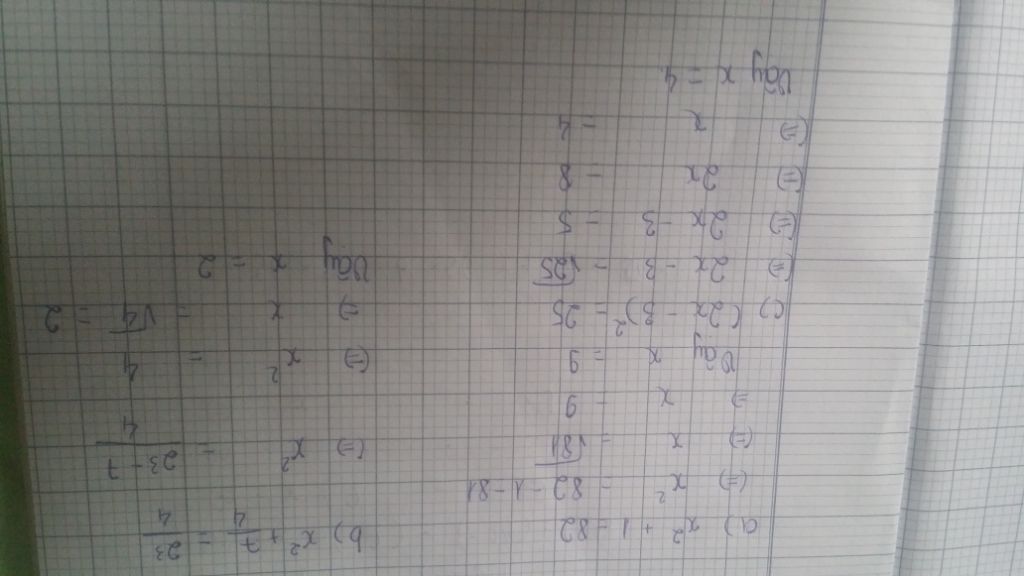 a) x² + 1 = 82
(=) x² = 82 - 1 = 81
(=) x = √81
=> x = 9
Vậy x = 9
c) (2x - 3)² = 25
(=) 2x - 3 = √25
(=) 2x - 3 = 5
(=) 2x = 8
(=) x = 4
Vậy x = 4
b) x² + 7/4 = 23/4
(=) x² = 23-7/4
(=) x² = 4
=> x = √4 = 2
Vậy x = 2